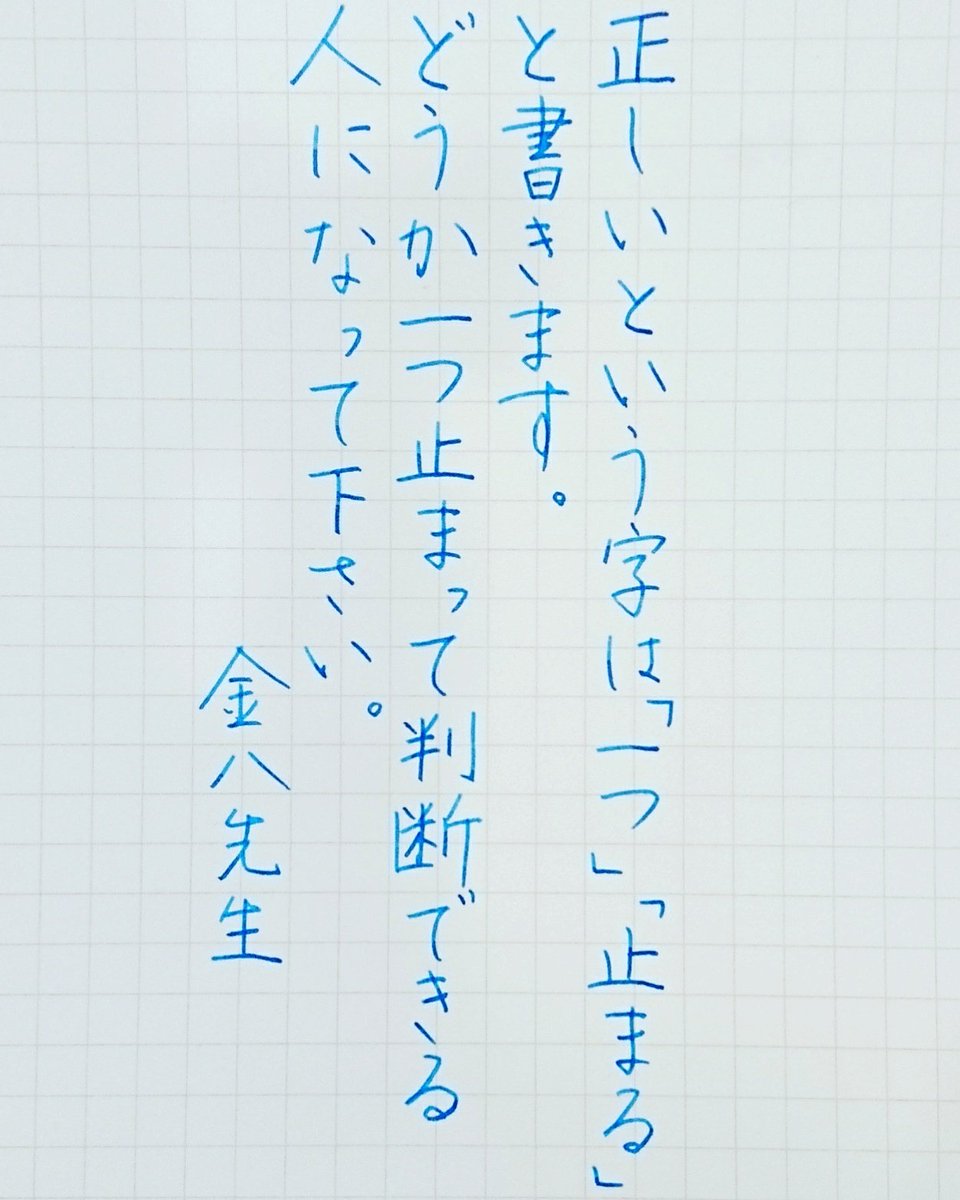 正しいという字は「一つ」「止まる」
と書きます。
どうか一つ止まって判断できる
人になって下さい。
金八先生